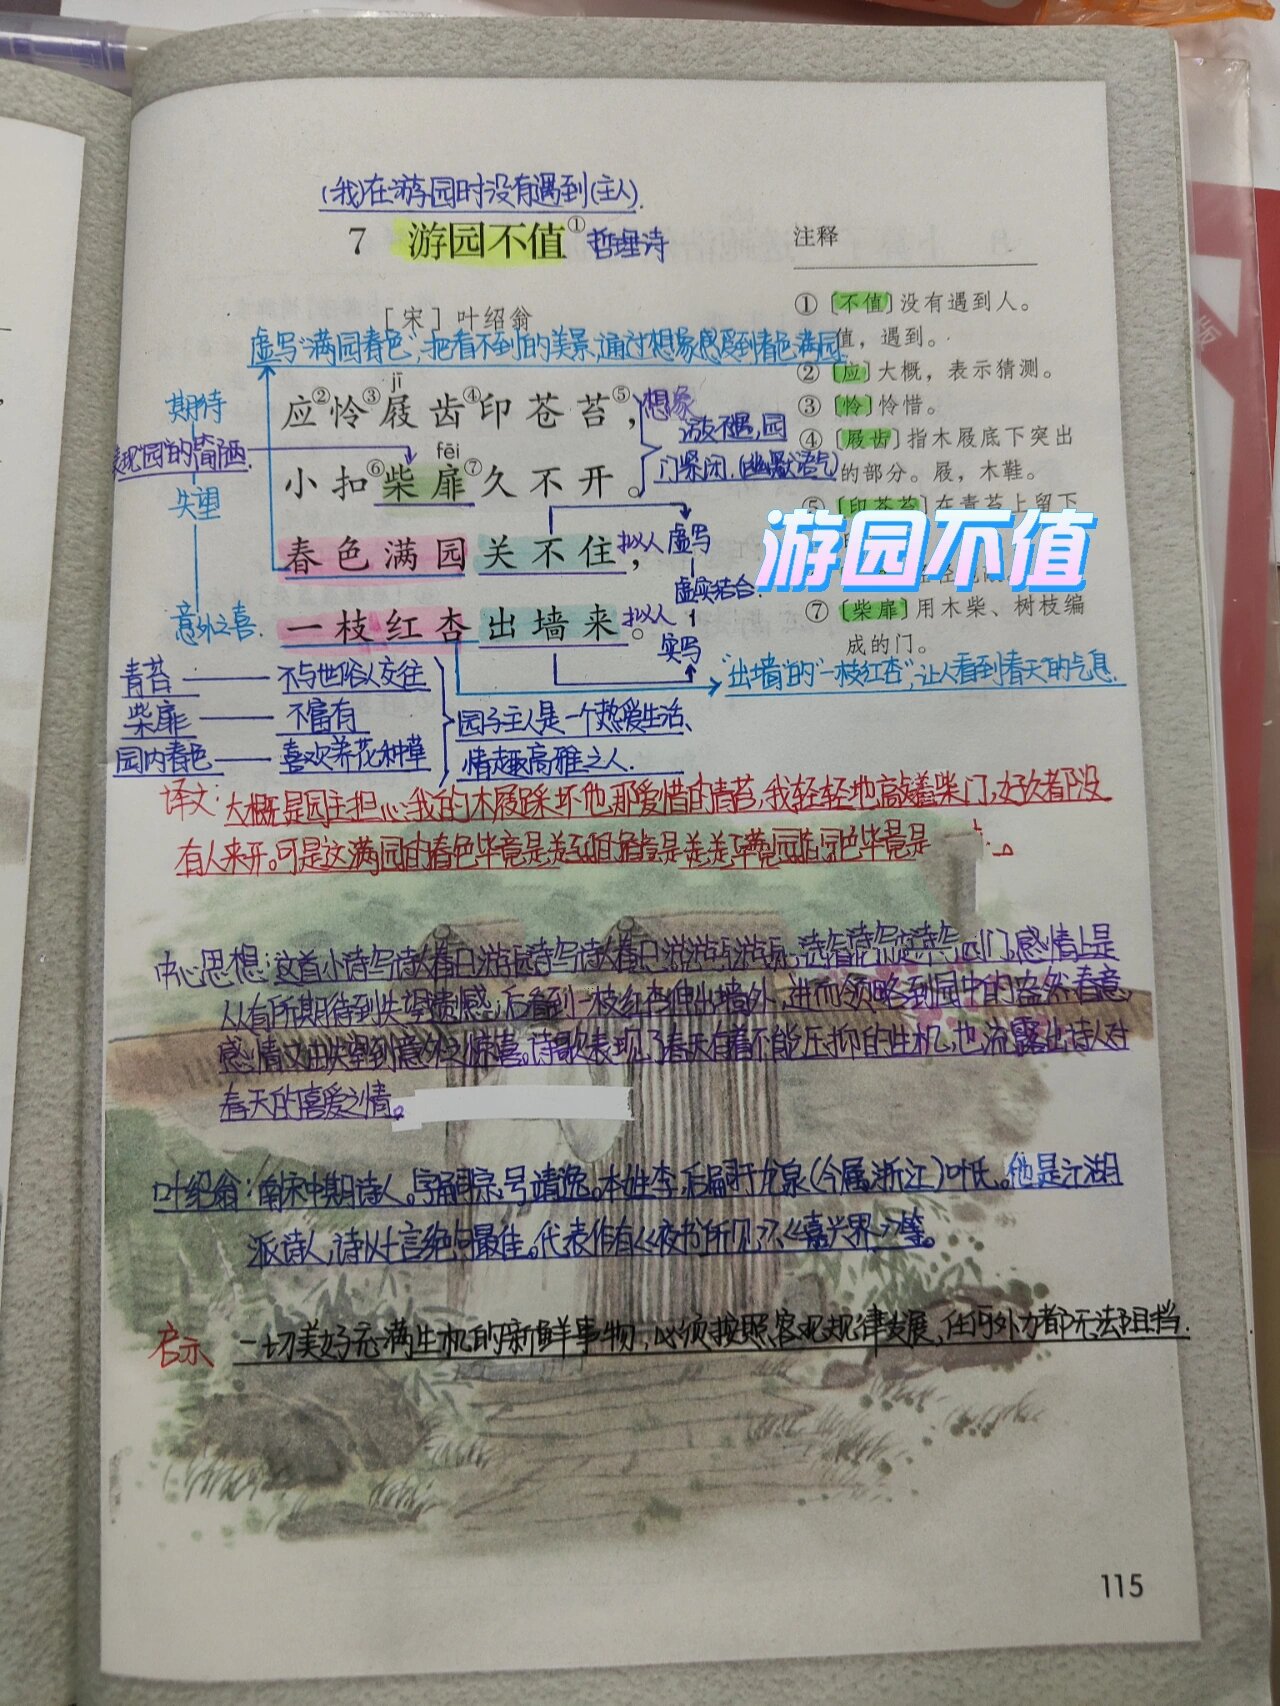 (我)在游园时没有遇到(主人).
7 游园不值① 哲理诗
[宋]叶绍翁
虚写"满园春色",把看不到的美景,通过想象感受到春色满园
期待
jī
应②怜③屐齿④印苍苔⑤,
想象
访友不遇,园
门紧闭.(幽默语气)
"园"的简陋.
fēi
小扣⑥柴扉⑦久不开。
失望
春色满园关不住,
拟人 虚写
虚实结合.
意外之喜.
一枝红杏出墙来。
拟人
实写
"出墙"的"一枝红杏",让人看到春天的气息.
青苔 —— 不与世俗人交往
柴扉 —— 不富有
园内春色 —— 喜欢养花种草
园子主人是一个热爱生活、
情趣高雅之人.
注释
① [不值] 没有遇到人。
值,遇到。
② [应] 大概,表示猜测。
③ [怜] 怜惜。
④ [屐齿] 指木屐底下突出
的部分。屐,木鞋。
⑤ [印苍苔] 在青苔上留下
游园不值
⑦ [柴扉] 用木柴、树枝编
成的门。
译文:大概是园主担心我的木屐踩坏他那爱惜的青苔,我轻轻地高敲着柴门,好久都没
有人来开。可是这满园的春色毕竟是
中心思想:这首小诗写诗人春日游园 感情上是
从有所期待到失望遗憾;后看到一枝红杏伸出墙外,进而领略到园中的盎然春意,
感情又由失望到意外之惊喜。诗歌表现了春天有着不能压抑的生机,也流露出诗人对
春天的喜爱之情。
叶绍翁:南宋中期诗人。字嗣宗,号靖逸。本姓李,后 于龙泉(今属浙江)叶氏。他是江湖
派诗人,诗以七言绝句最佳。代表作有《夜书所见》、《嘉兴界》等。
启示 一切美好充满生机的新鲜事物,必须按照客观规律发展,任何外力都无法阻挡.
115